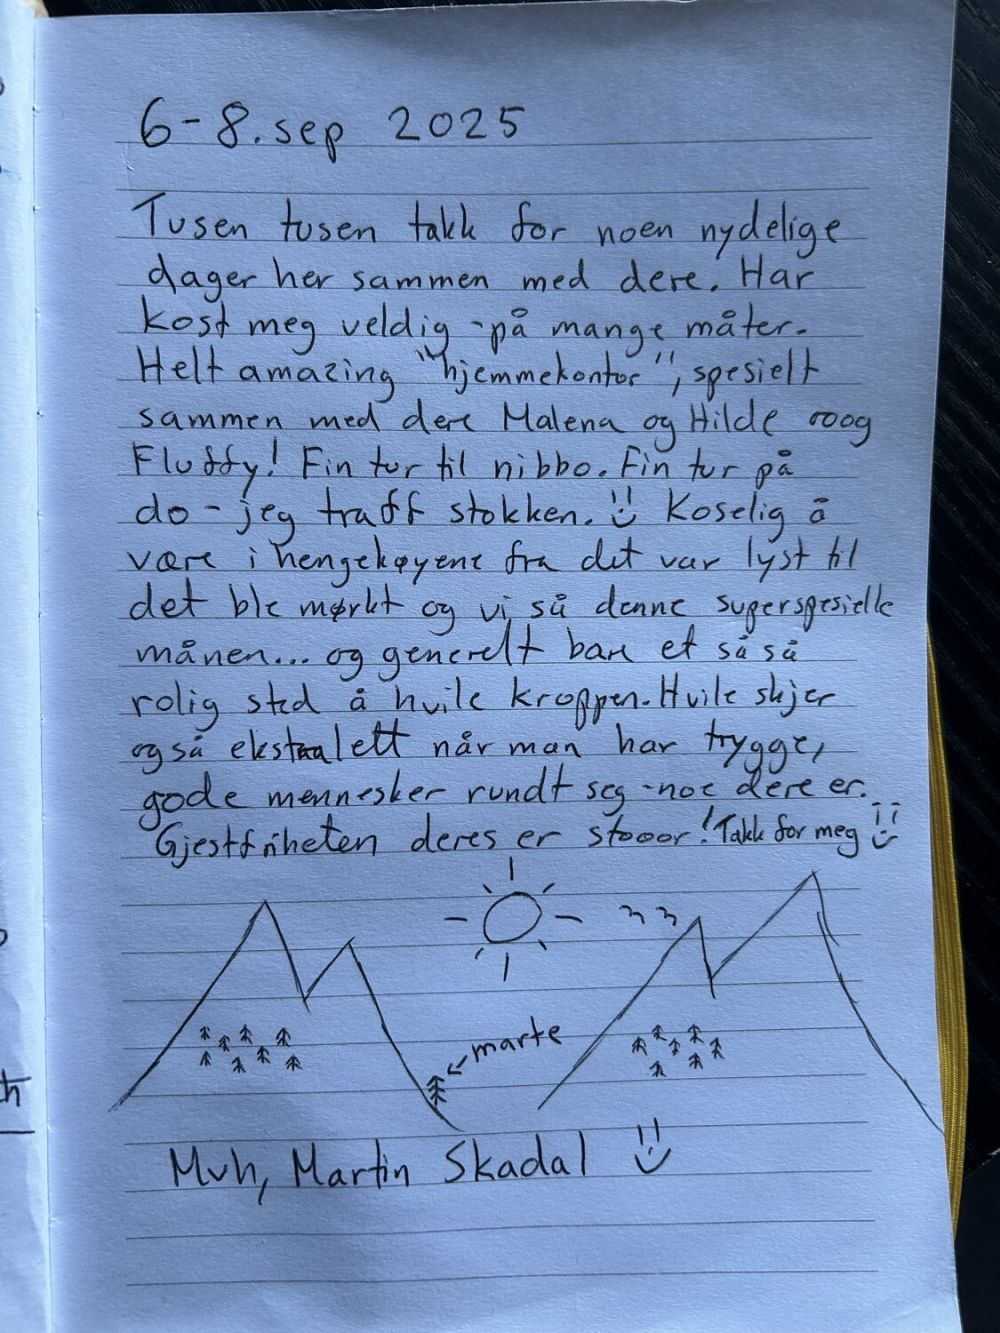 6-8. sep 2025
Tusen tusen takk for noen nydelige
dager her sammen med dere. Har
kost meg veldig - på mange måter.
Helt amazing "hjemmekontor", spesielt
sammen med dere Malena og Hilde ooog
Fluffy! Fin tur til nibbo. Fin tur på
do - jeg traff stokken. Koselig å
være i hengekøyene fra det var lyst til
det ble mørkt og vi så denne superspesielle
månen... og generelt bare et så så
rolig sted å hvile kroppen. Hvile skjer
også ekstra lett når man har trygge,
gode mennesker rundt seg - noe dere er.
Gjestfriheten deres er stooor! Takk for meg
marte
Mvh, Martin Skadal